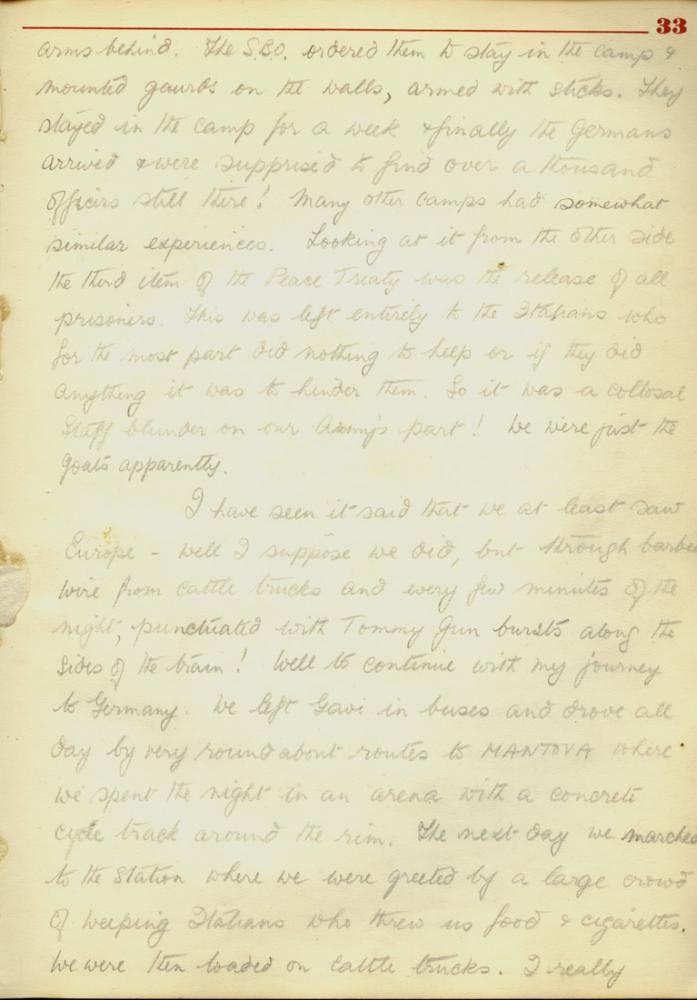 33
arms behind. The S.B.O. ordered them to stay in the camp &
mounted gaurds on the walls, armed with sticks. They
stayed in the camp for a week & finally the Germans
arrived & were supprised to find over a thousand
officirs still there! Many other camps had somewhat
similar experiences. Looking at it from the other side
the third item of the Peace Treaty was the release of all
prisoners. This was left entirely to the Italians who
for the most part did nothing to help or if they did
anything it was to hinder them. So it was a collosal
Staff blunder on our Army's part! We were just the
goats apparently.
I have seen it said that we at least saw
Europe - well I suppose we did, but through barbed
wire from cattle trucks and every few minutes of the
night, punctuated with Tommy Gun bursts along the
sides of the train! Well to continue with my journey
to Germany. We left Gavi in buses and drove all
day by very roundabout routes to MANTOVA where
we spent the night in an arena with a concrete
cycle track around the rim. The next day we marched
to the station where we were greeted by a large crowd
of weeping Italians who threw us food & cigarettes.
We were then loaded on cattle trucks. I really